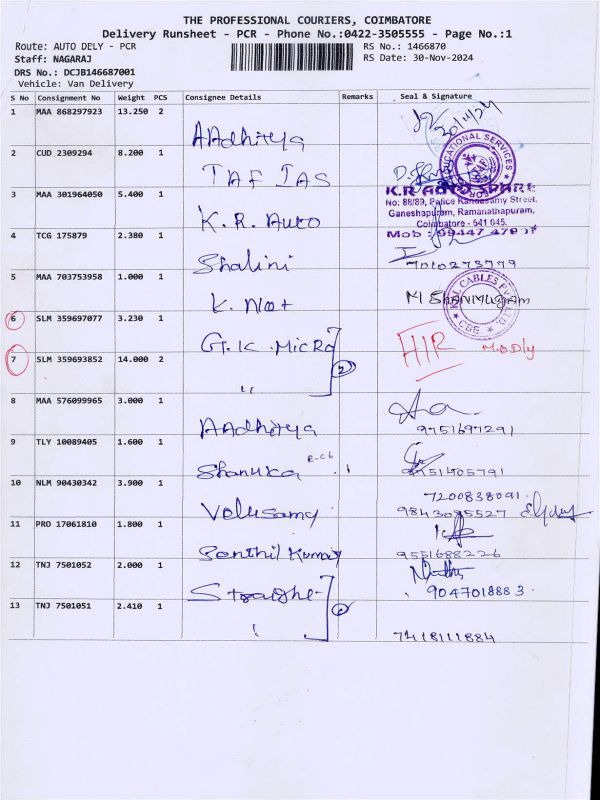 THE PROFESSIONAL COURIERS, COIMBATORE
Delivery Runsheet - PCR - Phone No.:0422-3505555 - Page No.:1
Route: AUTO DELY - PCR RS No.: 1466870
Staff: NAGARAJ RS Date: 30-Nov-2024
DRS No.: DCJB146687001
Vehicle: Van Delivery
S No Consignment No Weight PCS Consignee Details Remarks Seal & Signature
1 MAA 868297923 13.250 2 AAdhitya 30/11/24
2 CUD 2309294 8.200 1 TAF IAS
EDUCATIONAL SERVICES
3 MAA 301964050 5.400 1 K.R. Auto
K.R AUTO SPARE
No: 88/89, Police Kandasamy Street,
Ganeshapuram, Ramanathapuram,
Coimbatore - 641 045.
Mob : 99447 4797
4 TCG 175879 2.380 1 Shalini 7010273779
5 MAA 703753958 1.000 1 M SHANMUGAM
CABLES
CBE
6 SLM 359697077 3.230 1 G.K. Micro HIR M.ODly
7 SLM 359693852 14.000 2 " 2
8 MAA 576099965 3.000 1 AAdhitya 9751697291
9 TLY 10089405 1.600 1 51505791
10 NLM 90430342 3.900 1 Velusamy 7200838091
11 PRO 17061810 1.800 1 Senthil Kumar 9551688226
12 TNJ 7501052 2.000 1 9047018883
13 TNJ 7501051 2.410 1 7418111884